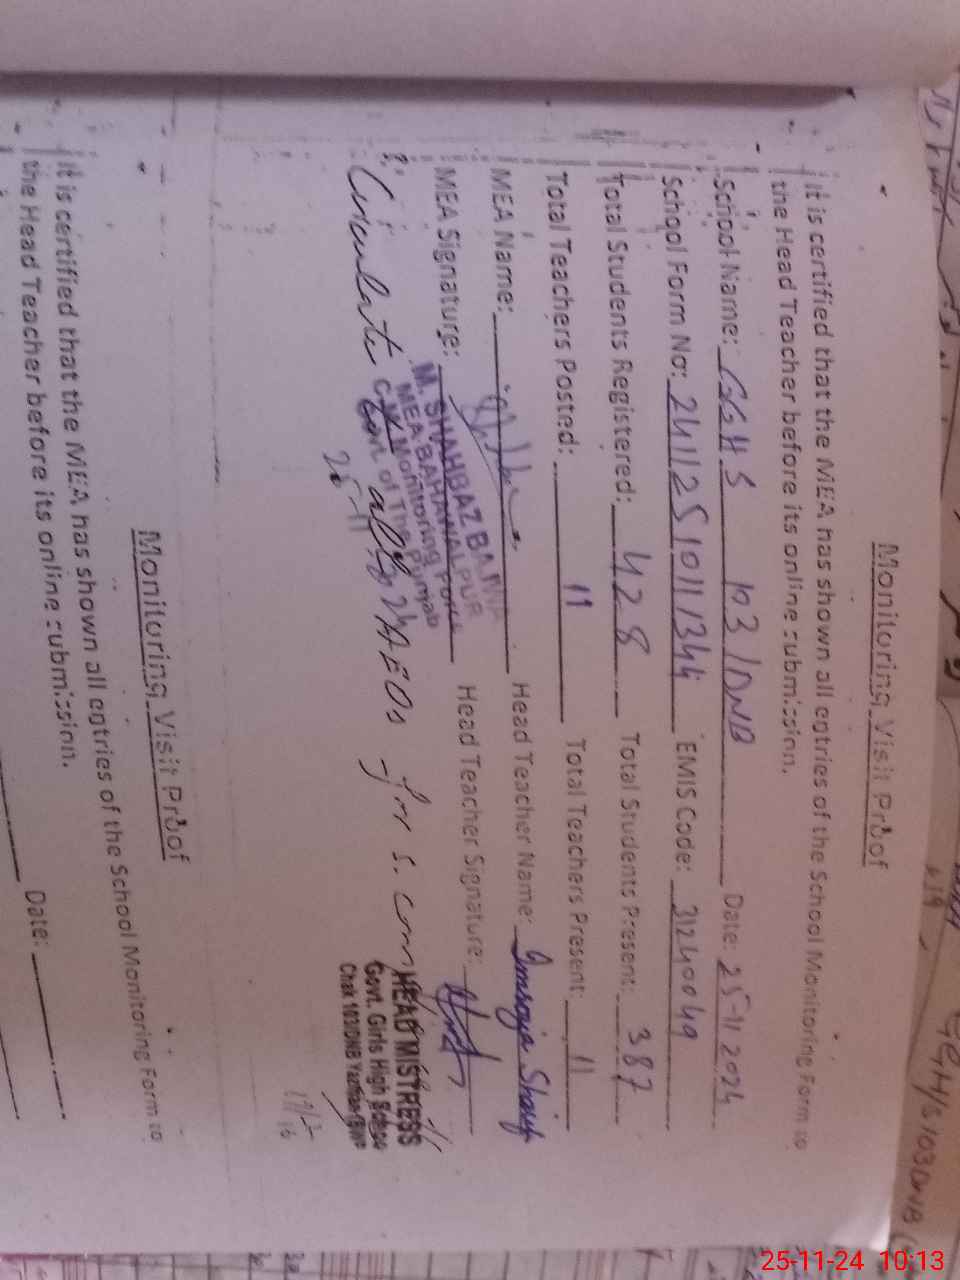 Monitoring Visit Proof
It is certified that the MEA has shown all entries of the School Monitoring Form to
the Head Teacher before its online submission.
School Name: GGHS 103/DNB Date: 25-11 2024
School Form No: 24112510111344 EMIS Code: 31240049
Total Students Registered: 428 Total Students Present: 387
Total Teachers Posted: 11 Total Teachers Present: 11
MEA Name: Head Teacher Name: Shaif
MEA Signature: Head Teacher Signature:
M. SHAHBAZ BAJWA
MEA BAHAWALPUR
C.M. Monitoring Force
Govt of The Punjab
Circulate all AEOs for
HEAD MISTRESS
Govt. Girls High School
Chak 103/DNB Yazman (BWP
Monitoring Visit Proof
It is certified that the MEA has shown all entries of the School Monitoring Form to
the Head Teacher before its online submission.
Date:
GGH/S 103DNB
25-11-24 10:13